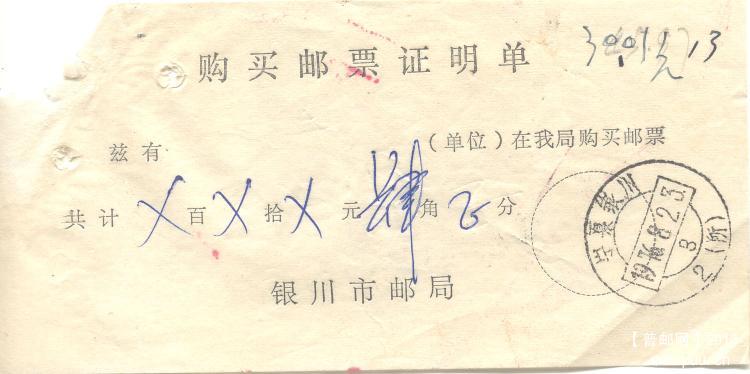 购买邮票证明单
13
兹有 （单位）在我局购买邮票
共计 X 百 X 拾 X 元 肆 角 分
银川市邮局
宁夏银川
1976.8.23
3
2（所）